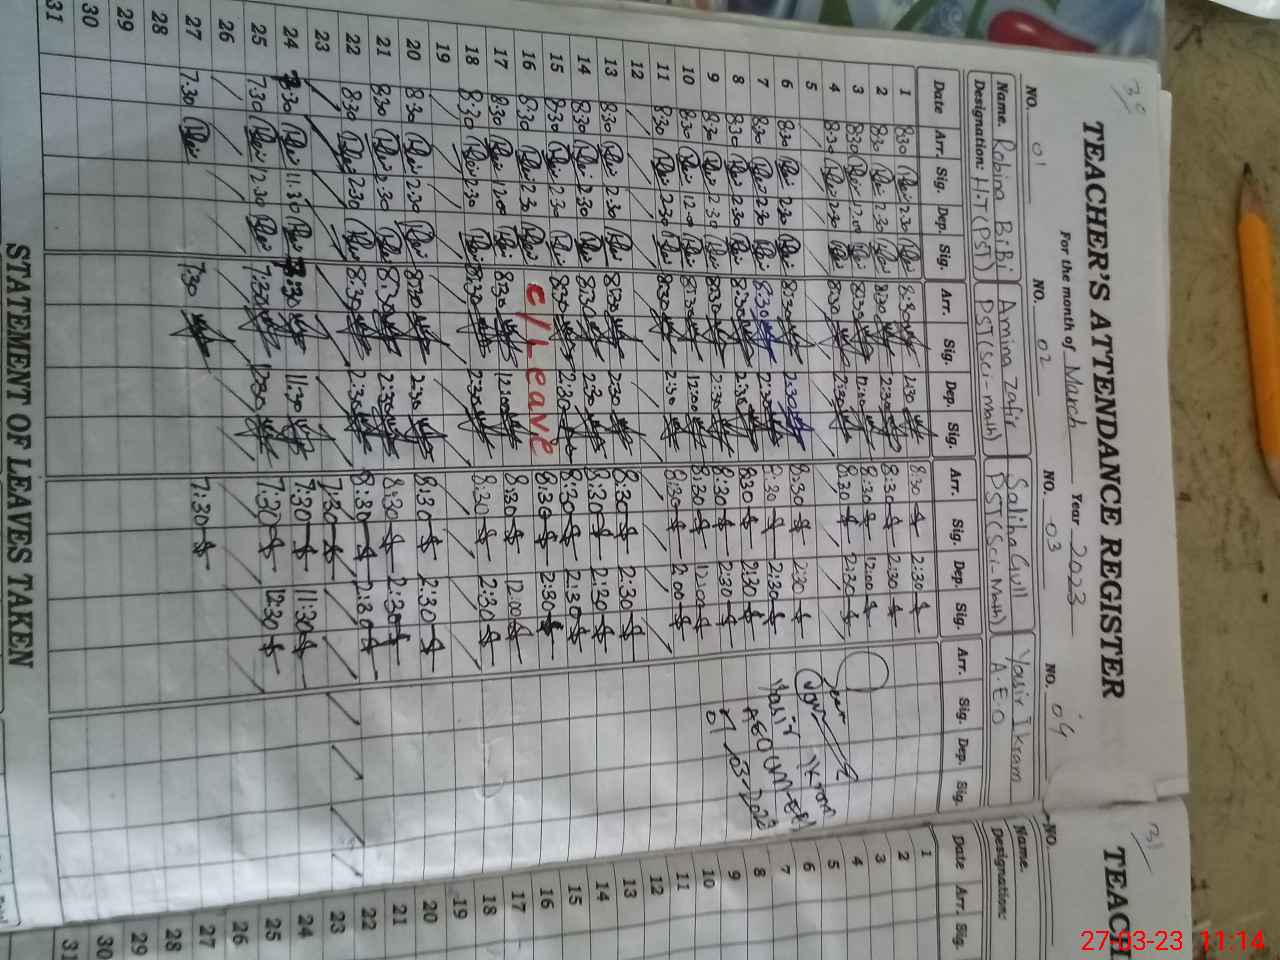 30
TEACHER'S ATTENDANCE REGISTER
For the month of March Year 2023
NO. 01 NO. 02 NO. 03 NO. 04
Name. Robina BiBi Amina Zafir Saliha Gull Yasir Ikram
Designation: H.T (PST) PST (Sci-math) PST (Sci-Math) A.E.O
Date Arr. Sig. Dep. Sig. Arr. Sig. Dep. Sig. Arr. Sig. Dep. Sig. Arr. Sig. Dep. Sig.
1 8:30 2:30 8:30 2:30 8:30 2:30
2 8:30 2:30 8:30 2:30 8:30 2:30
3 8:30 12:00 8:30 12:00 8:30 12:00
4 8:30 2:30 8:30 2:30 8:30 2:30
5
6 8:30 2:30 8:30 2:30 8:30 2:30
7 8:30 2:30 8:30 2:30 8:30 2:30
8 8:30 2:30 8:30 2:30 8:30 2:30
9 8:30 2:30 8:30 2:30 8:30 2:30
10 8:30 12:00 8:30 12:00 8:30 12:00
11 8:30 2:30 8:30 2:30 8:30 2:00
12
13 8:30 2:30 8:30 2:30 8:30 2:30
14 8:30 2:30 8:30 2:30 8:30 2:30
15 8:30 2:30 8:30 2:30 8:30 2:30
16 8:30 2:30 c/Leave 8:30 2:30
17 8:30 12:00 8:30 12:00 8:30 12:00
18 8:30 2:30 8:30 2:30 8:30 2:30
19
20 8:30 2:30 8:30 2:30 8:30 2:30
21 8:30 2:30 8:30 2:30 8:30 2:30
22 8:30 2:30 8:30 2:30 8:30 2:30
23 7:30
24 7:30 11:30 7:30 11:30 7:30 11:30
25 7:30 12:30 7:30 12:30 7:30 12:30
26
27 7:30 7:30 7:30
28
29
30
31
Yasir Ikram
03-2023
STATEMENT OF LEAVES TAKEN
31
TEACH
NO.
Name.
Designation:
Date Arr. Sig.
1
2
3
4
5
6
7
8
9
10
11
12
13
14
15
16
17
18
19
20
21
22
23
24
25
26
27
28
29
30
31
27-03-23 11:14